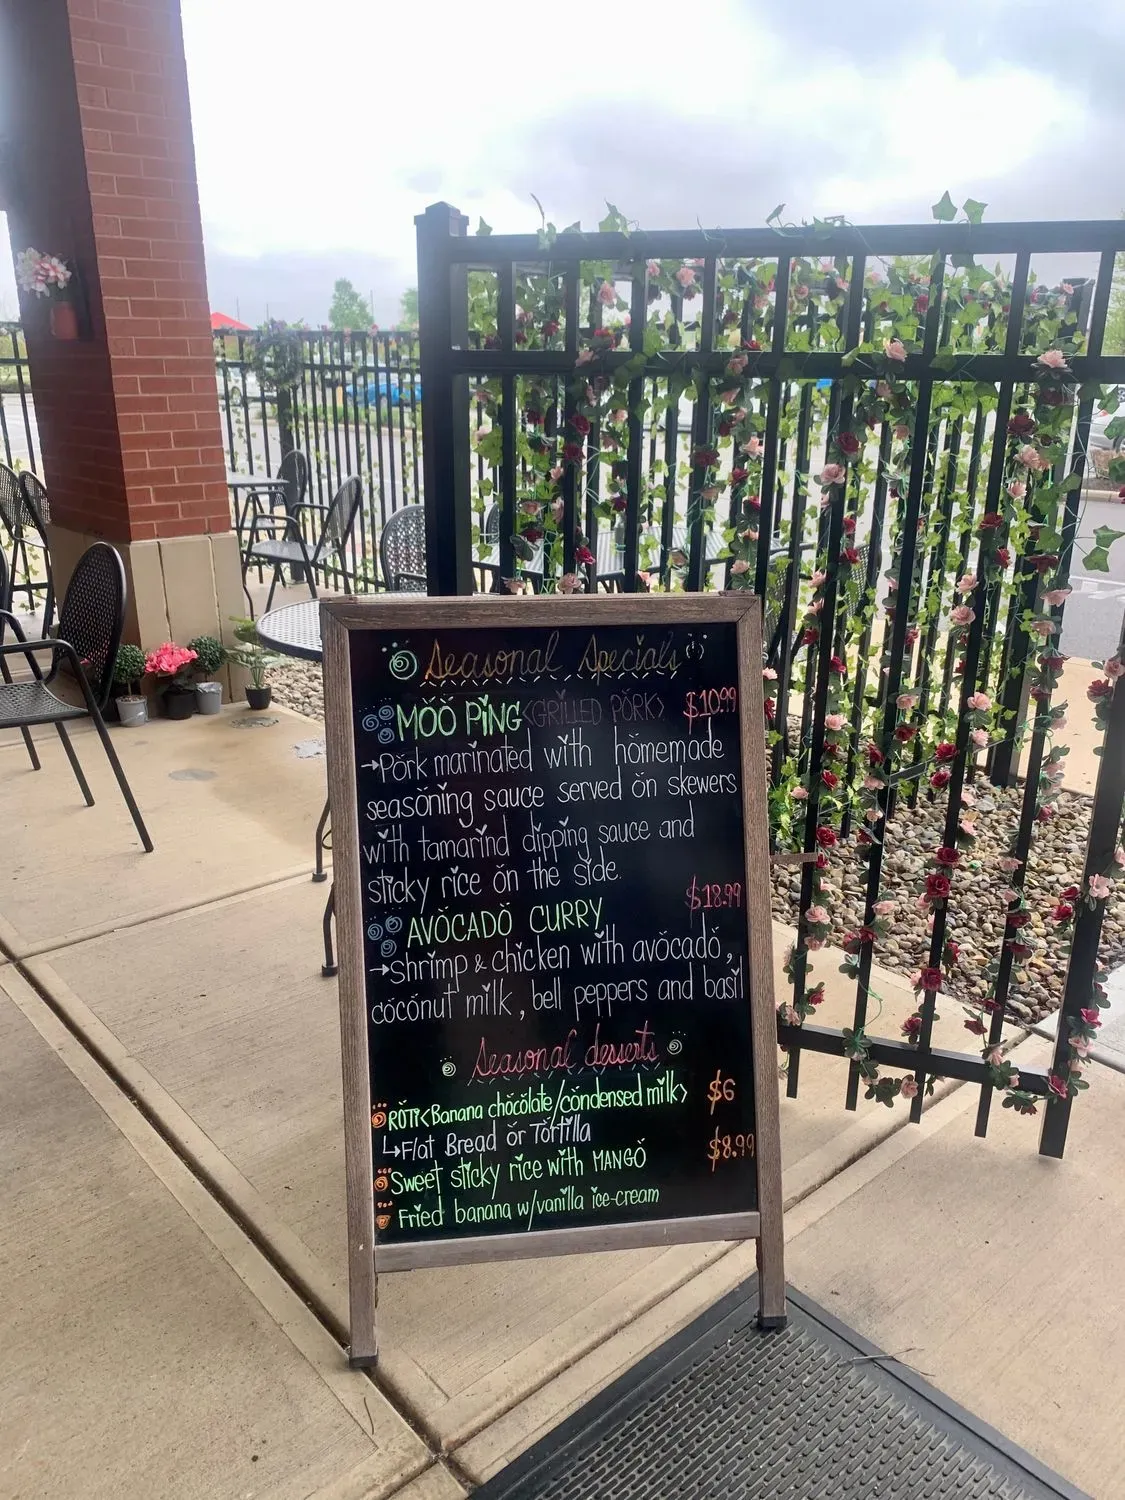 Seasonal Specials
MOO PiNG <GRILLED PORK> $10.99
→Pork marinated with homemade
seasoning sauce served on skewers
with tamarind dipping sauce and
sticky rice on the side.
AVOCADO CURRY $18.99
→shrimp & chicken with avocado,
coconut milk, bell peppers and basil
Seasonal desserts
ROTI <Banana chocolate/condensed milk> $6
↳Flat Bread or Tortilla
Sweet sticky rice with MANGO $8.99
Fried banana w/vanilla ice-cream